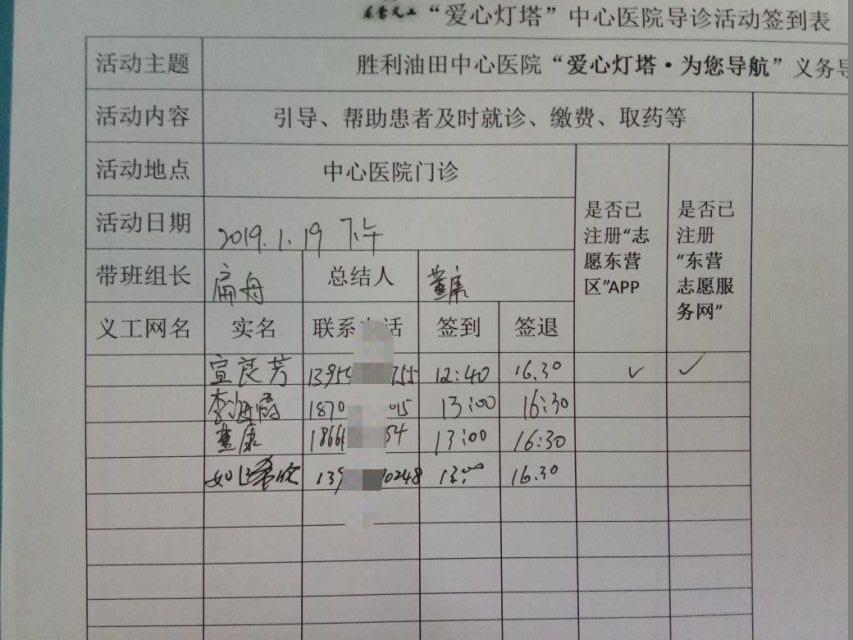 “爱心灯塔”中心医院导诊活动签到表
活动主题 胜利油田中心医院“爱心灯塔·为您导航”义务导
活动内容 引导、帮助患者及时就诊、缴费、取药等
活动地点 中心医院门诊
是否已注册“志愿东营区”APP
是否已注册“东营志愿服务网”
活动日期 2019.1.19 下午
带班组长 扁舟 总结人 董康
义工网名 实名 联系电话 签到 签退
宣良芳 1395 755 12:40 16.30 ✓ ✓
李海霞 1870 15 13:00 16:30
董康 1866 54 13:00 16:30
13 0248 13:00 16.30